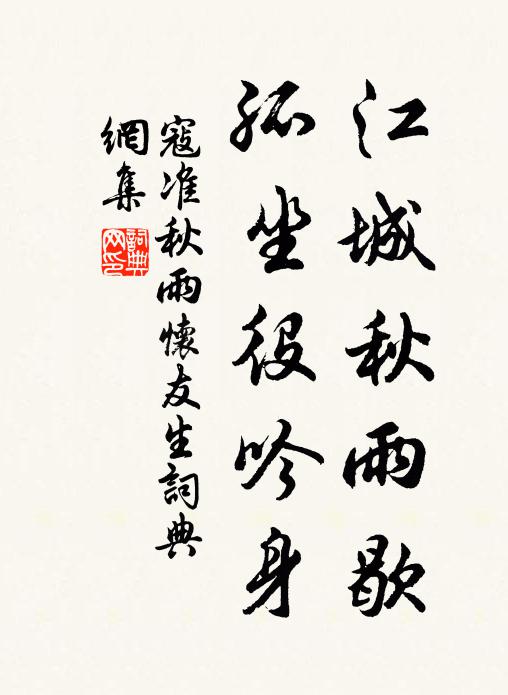 江城秋雨歇
孤坐役吟身
寇准秋雨懷友生詞典
網集
詞典
网印